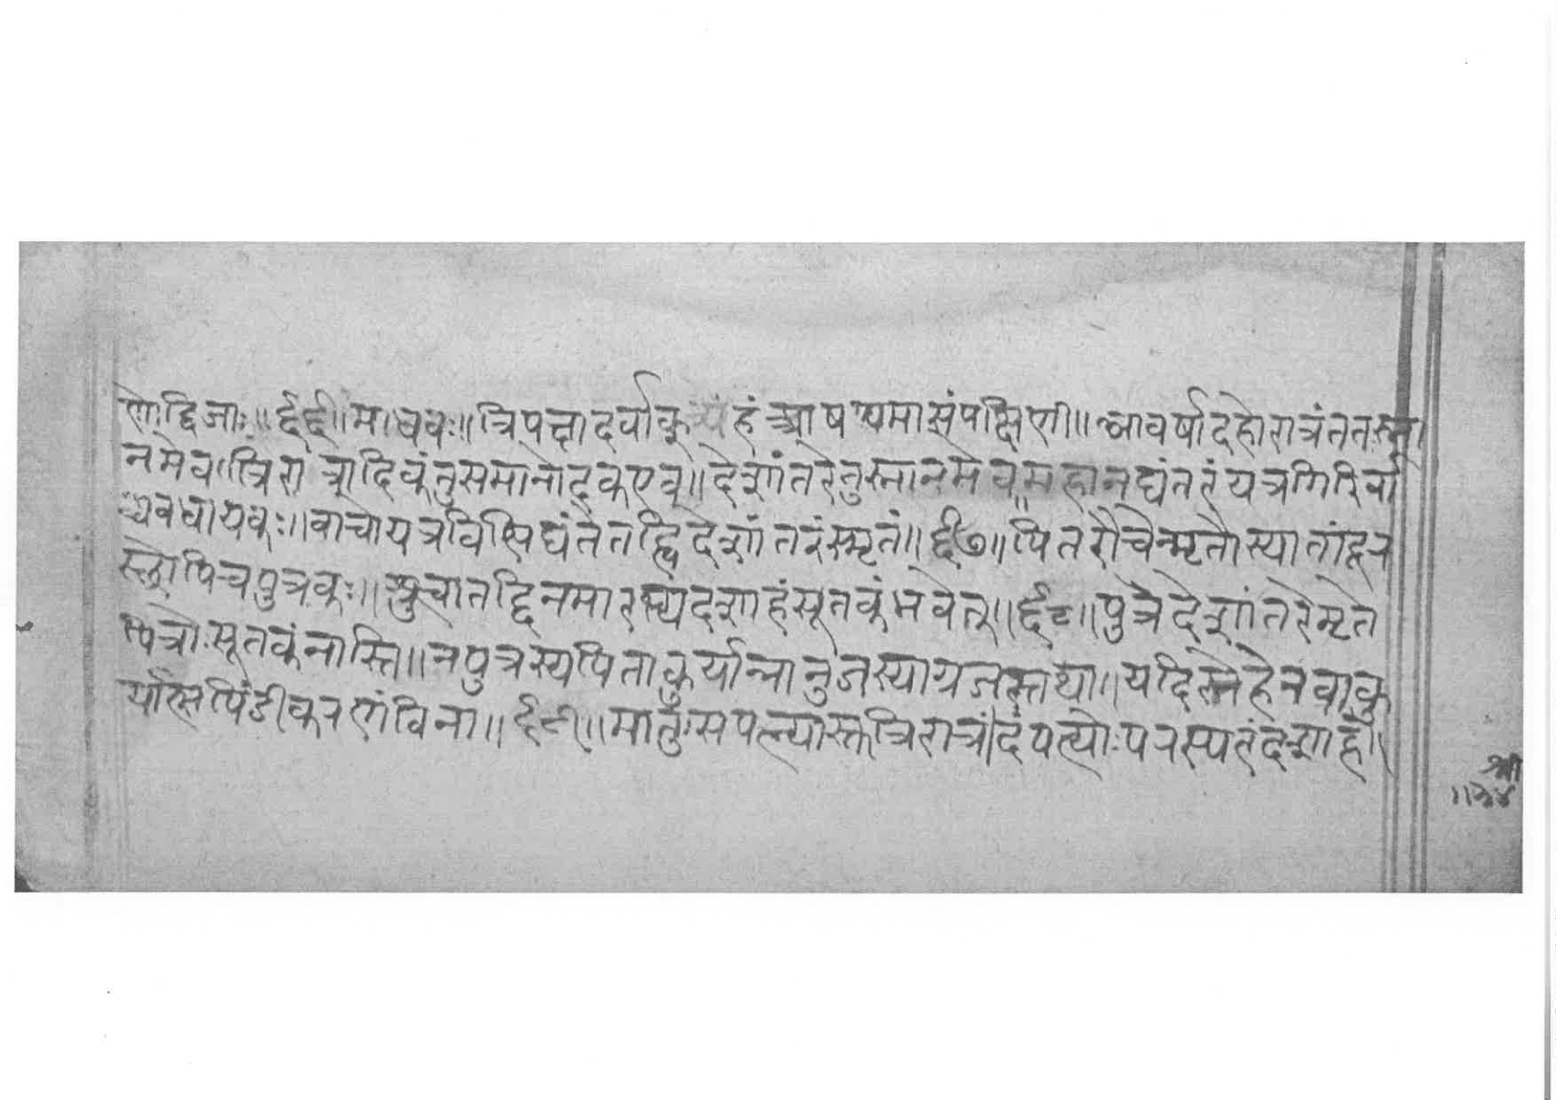 णोद्विजाः॥६६॥माधवः॥त्रिपक्षादर्वाक्त्र्यहंआषण्मासंपक्षिणी॥आवर्षादहोरात्रंततःस्ना
नमेव।त्रिरात्रादिकंतुसमानोदकएव॥देशांतरेतुस्नानमेव॥महानद्यंतरंयत्रगिरिर्वा
व्यवधायकः॥वाचोयत्रविभिद्यंतेतद्धिदेशांतरंस्मृतं॥६७॥पितरौचेन्मृतौस्यातांदूर
स्थोपिचपुत्रकः॥श्रुत्वातद्दिनमारभ्यदशाहंसूतकंभवेत्॥६८॥पुत्रेदेशांतरेमृते
पित्रोःसूतकंनास्ति॥नपुत्रस्यपिताकुर्यान्नानुजस्याग्रजस्तथा॥यदिस्नेहेनवाकु
र्यात्सपिंडीकरणंविना॥६९॥मातुःसपत्न्यास्तुत्रिरात्रं।दंपत्योःपरस्परंदशाहो।
श्री
॥२४